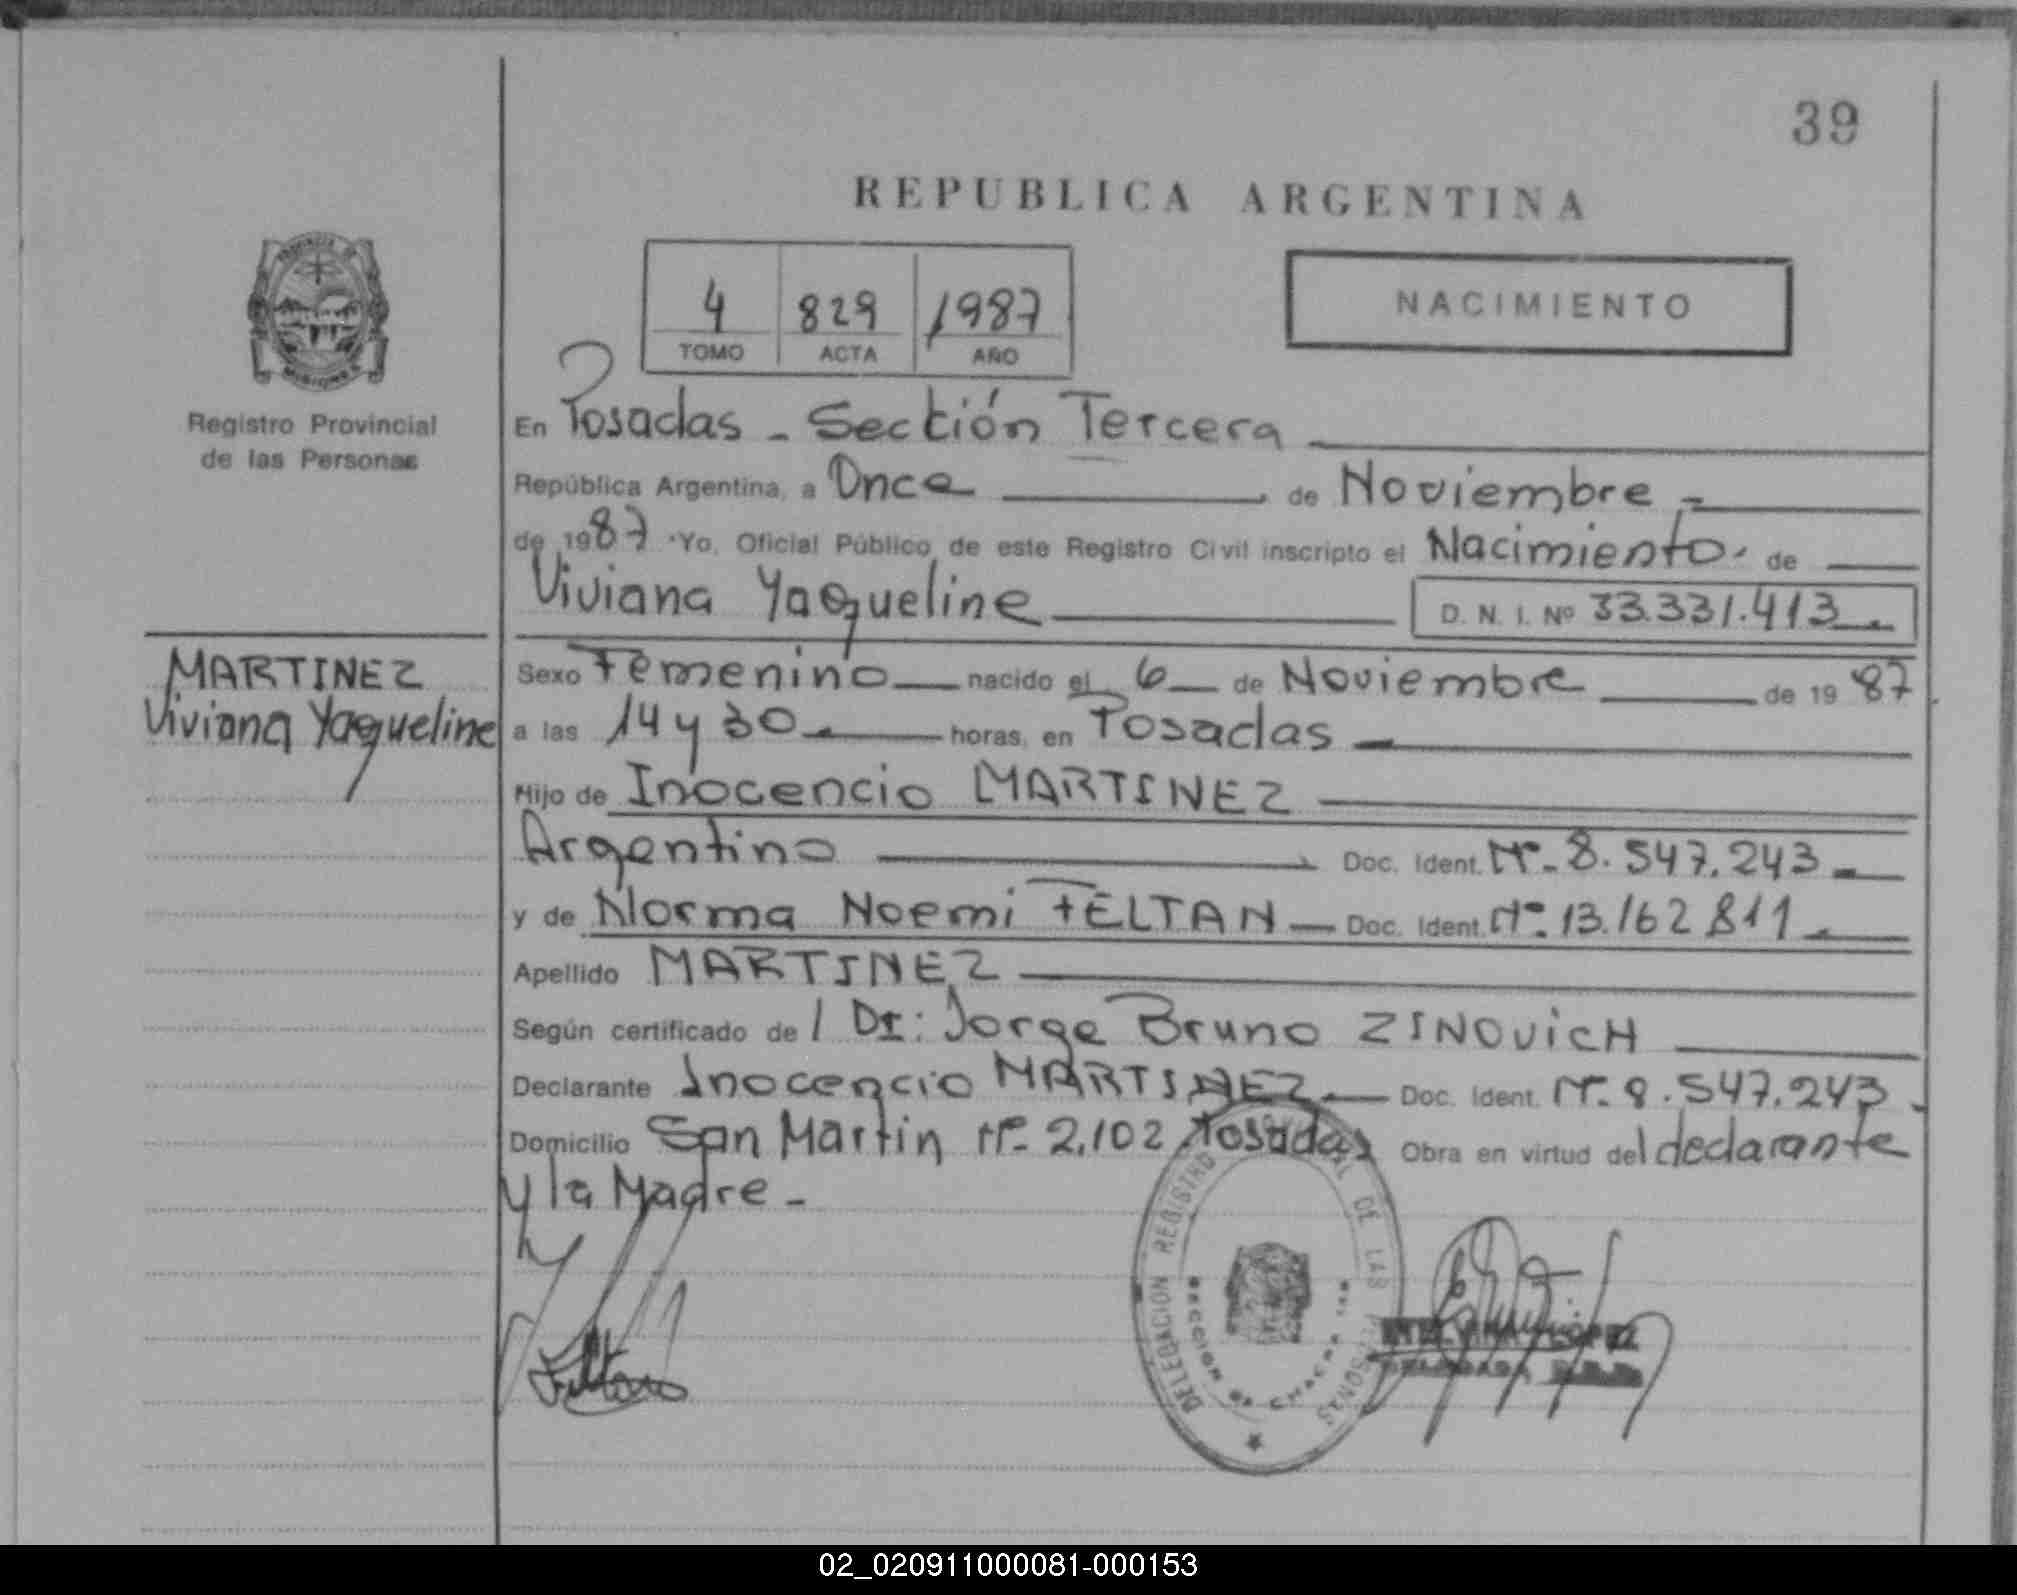 39
REPUBLICA ARGENTINA
4 829 1987
TOMO ACTA AÑO
NACIMIENTO
PROVINCIA DE MISIONES
Registro Provincial
de las Personas
En Posadas - Sección Tercera
República Argentina, a Once de Noviembre -
de 1987 Yo, Oficial Público de este Registro Civil inscripto el Nacimiento. de
Viviana Yaqueline D. N. I. Nº 33.331.413
MARTINEZ
Viviana Yaqueline
Sexo Femenino nacido el 6 de Noviembre de 1987
a las 14 y 30 horas, en Posadas
Hijo de Inocencio MARTINEZ
Argentino Doc. Ident. Nº- 8.547.243
y de Norma Noemi FELTAN Doc. Ident. Nº- 13.162 811
Apellido MARTINEZ
Según certificado de / Dr: Jorge Bruno ZINOVICH
Declarante Inocencio MARTINEZ Doc. Ident. Nº- 8.547.243
Domicilio San Martin Nº- 2.102 Posadas Obra en virtud del declarante
y la Madre -
DELEGACION REGISTRO DE LAS PERSONAS
SECCION CHACRA
LOPEZ
02_020911000081-000153